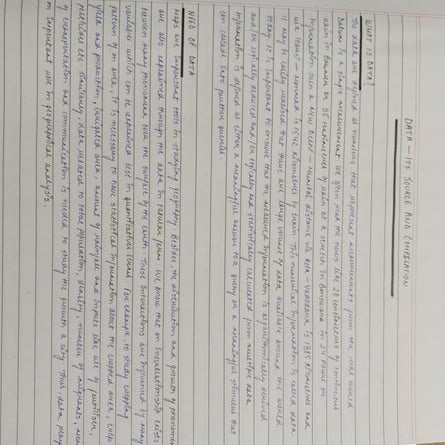 DATA – ITS SOURCE AND COMPILATION
WHAT IS DATA?
The data are defined as numbers that represent measurements from the real world.
Datum is a single measurement. We often read the news like 20 centimetres of continuous
rain in Banswara or 35 centimetres of rain at a stretch in Banswara in 24 hours or
information such as New Delhi – Mumbai distance via Kota – Vadodara is 1385 kilometres and
via Itarsi – Manmad is 1542 kilometres by train. This numerical information is called data.
It may be easily realised that there are large volume of data available around the world
today. It is important to ensure that the measured information is algorithmically derived
and/or logically deduced and/or statistically calculated from multiple data.
Information is defined as either a meaningful answer to a query or a meaningful stimulus that
can cascade into further queries.
NEED OF DATA
Maps are important tools in studying geography. Besides, the distribution and growth of phenomena
are also explained through the data in tabular form. We know that an interrelationship exists
between many phenomena over the surface of the earth. These interactions are influenced by many
variables which can be explained best in quantitative terms. For example, to study cropping
pattern of an area, it is necessary to have statistical information about the cropped area, crop
yield and production, irrigated area, amount of rainfall and inputs like use of fertiliser,
pesticides etc. Similarly, data related to total population, density, number of migrants,
of transportation and communication is needed to study the growth of a city. Thus, data plays
an important role in geographical analysis.